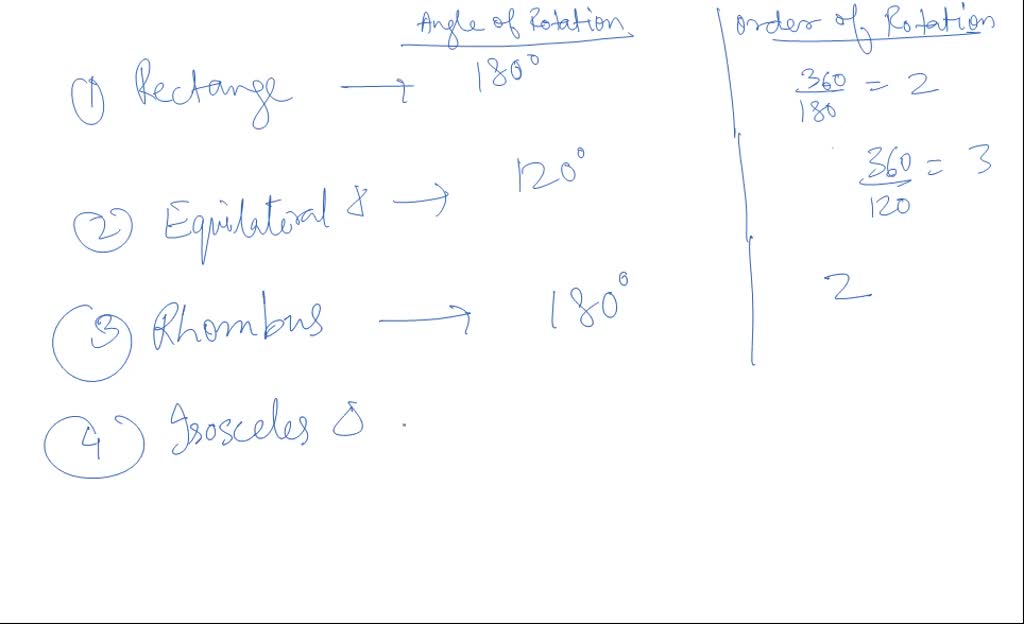 Angle of Rotation
Order of Rotation
① Rectange → 180°
360/180 = 2
② Equilateral Δ → 120°
360/120 = 3
③ Rhombus → 180°
2
④ Isosceles Δ